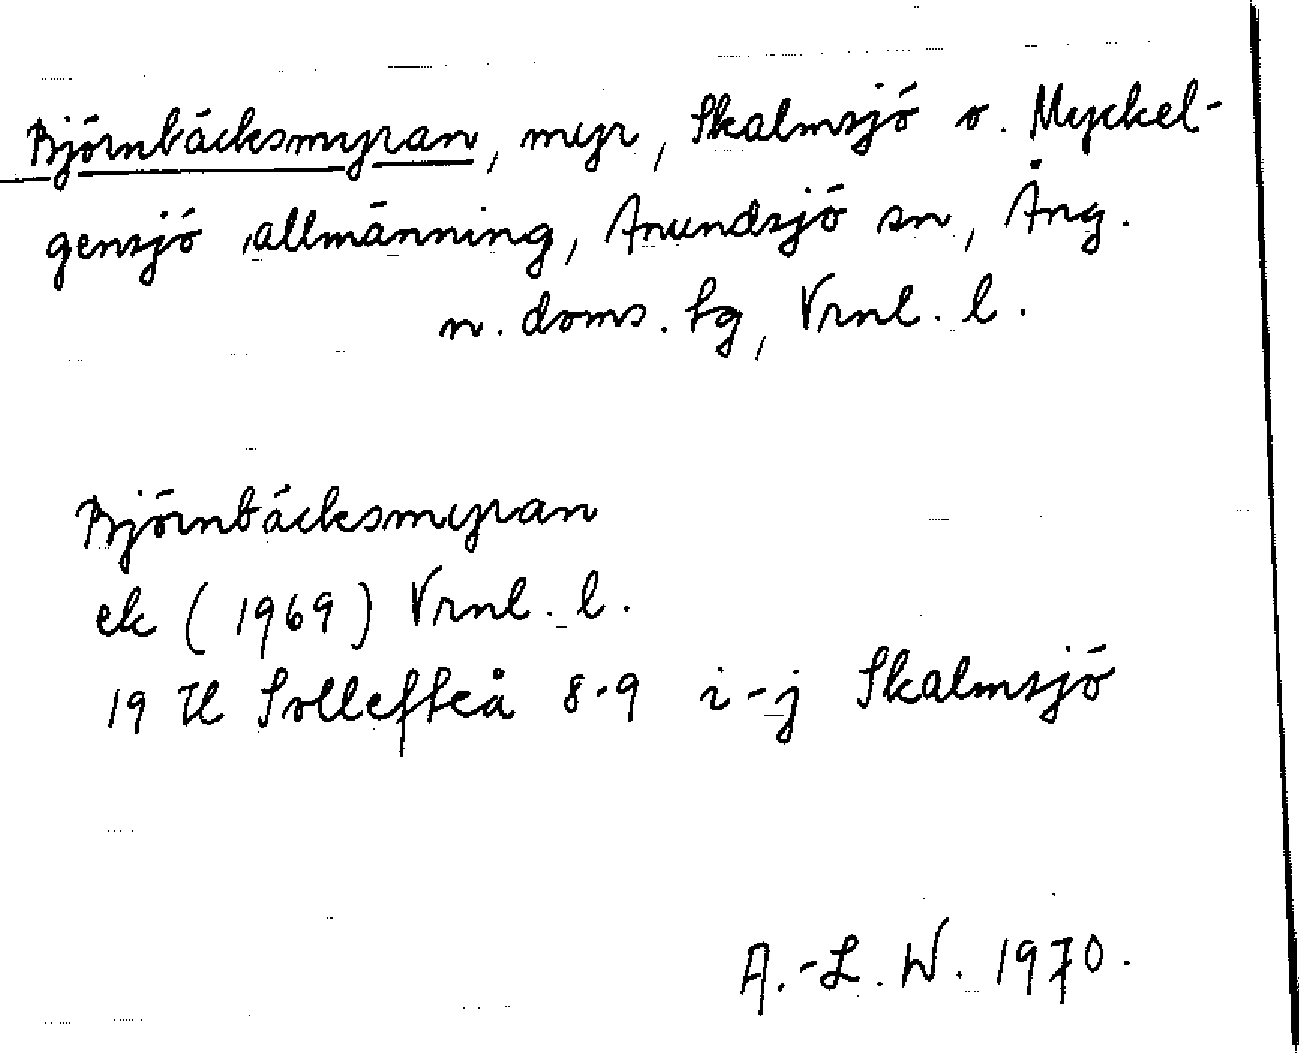 Björnbäcksmyran, myr, Skalmsjö o. Myckel-
gensjö allmänning, Anundsjö sn, Ång.
n. doms. tg, Vrnl. l.
Björnbäcksmyran
ek (1969) Vrnl. l.
19 H Sollefteå 8-9 i-j Skalmsjö
A.-L. W. 1970.